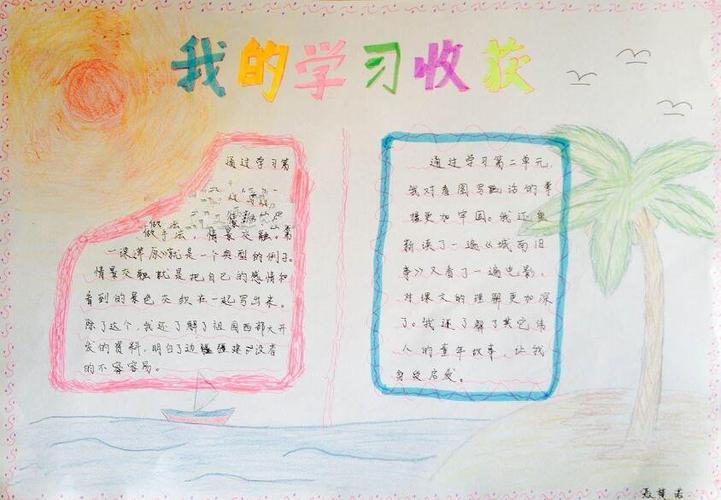 我的学习收获
通过学习第
做手法，情景交融。第
一课《草原》就是一个典型的例子。
情景交融就是把自己的感情和
看到的景色交织在一起写出来。
除了这个，我还了解了祖国西部大开
发的资料，明白了边疆建设者
的不容易。
通过学习第二单元，
我对看图写话的
更加牢固。我还重
新读了一遍《城南旧
事》又看了一遍电影，
对课文的理解更加深
了。我还了解了其它伟
人的童年故事，让我
受启发。